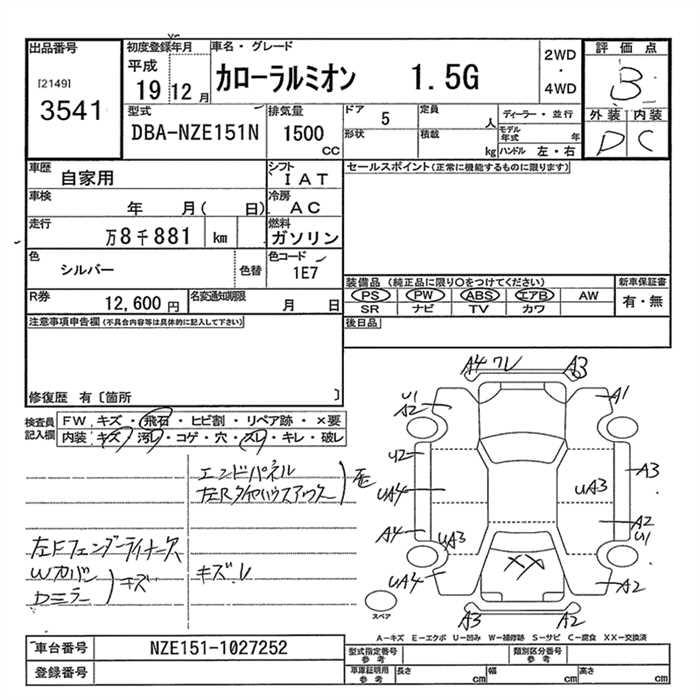 出品番号
[2149]
3541
初度登録年月
平成
19 12月
車名・グレード
カローラルミオン 1.5G
2WD
・
4WD
評価点
B
外装 内装
D C
型式
DBA-NZE151N
排気量
1500
cc
ドア
5
形状
定員
人
積載
kg
ディーラー・並行
モデル年式
年
ハンドル 左・右
車歴
自家用
シフト
IAT
車検
年 月( 日)
冷房
AC
走行
万8千881 km
燃料
ガソリン
色
シルバー
色替
色コード
1E7
R券
12,600 円
名変通知期限
月 日
セールスポイント(正常に機能するものに限ります)
装備品 (純正品に限り○をつけてください)
PS PW ABS エアB AW
SR ナビ TV カワ
新車保証書
有・無
後日品
注意事項申告欄(不具合内容等は具体的に記入して下さい)
修復歴 有〔箇所 〕
検査員記入欄
FW キズ・飛石・ヒビ割・リペア跡・×要
内装 キズ・汚レ・コゲ・穴・スレ・キレ・破レ
エンドパネル
左Rタイヤハウスアウタ
左Fフェンダーライナー欠
Wカバー
Dミラー
キズ
キズレ
A4 ワレ
A3
U1
A2
A1
U2
UA4
UA3
A3
A4
UA3
A2
U1
UA4
XX
A2
A3
A2
スペア
A－キズ E－エクボ U－凹み W－補修跡 S－サビ C－腐食 XX－交換済
車台番号
NZE151-1027252
登録番号
型式指定番号
参考
類別区分番号
参考
車庫証明用
参考
長さ
cm
幅
cm
高さ
cm